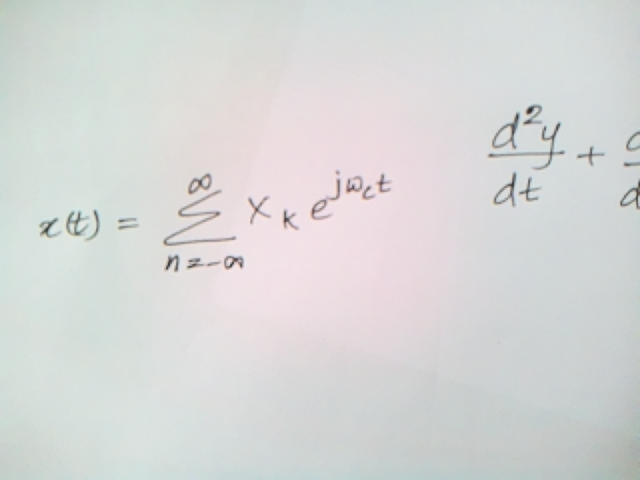 x(t) = ∑_{n=-∞}^{∞} X_k e^{jω_c t}
d²y/dt +